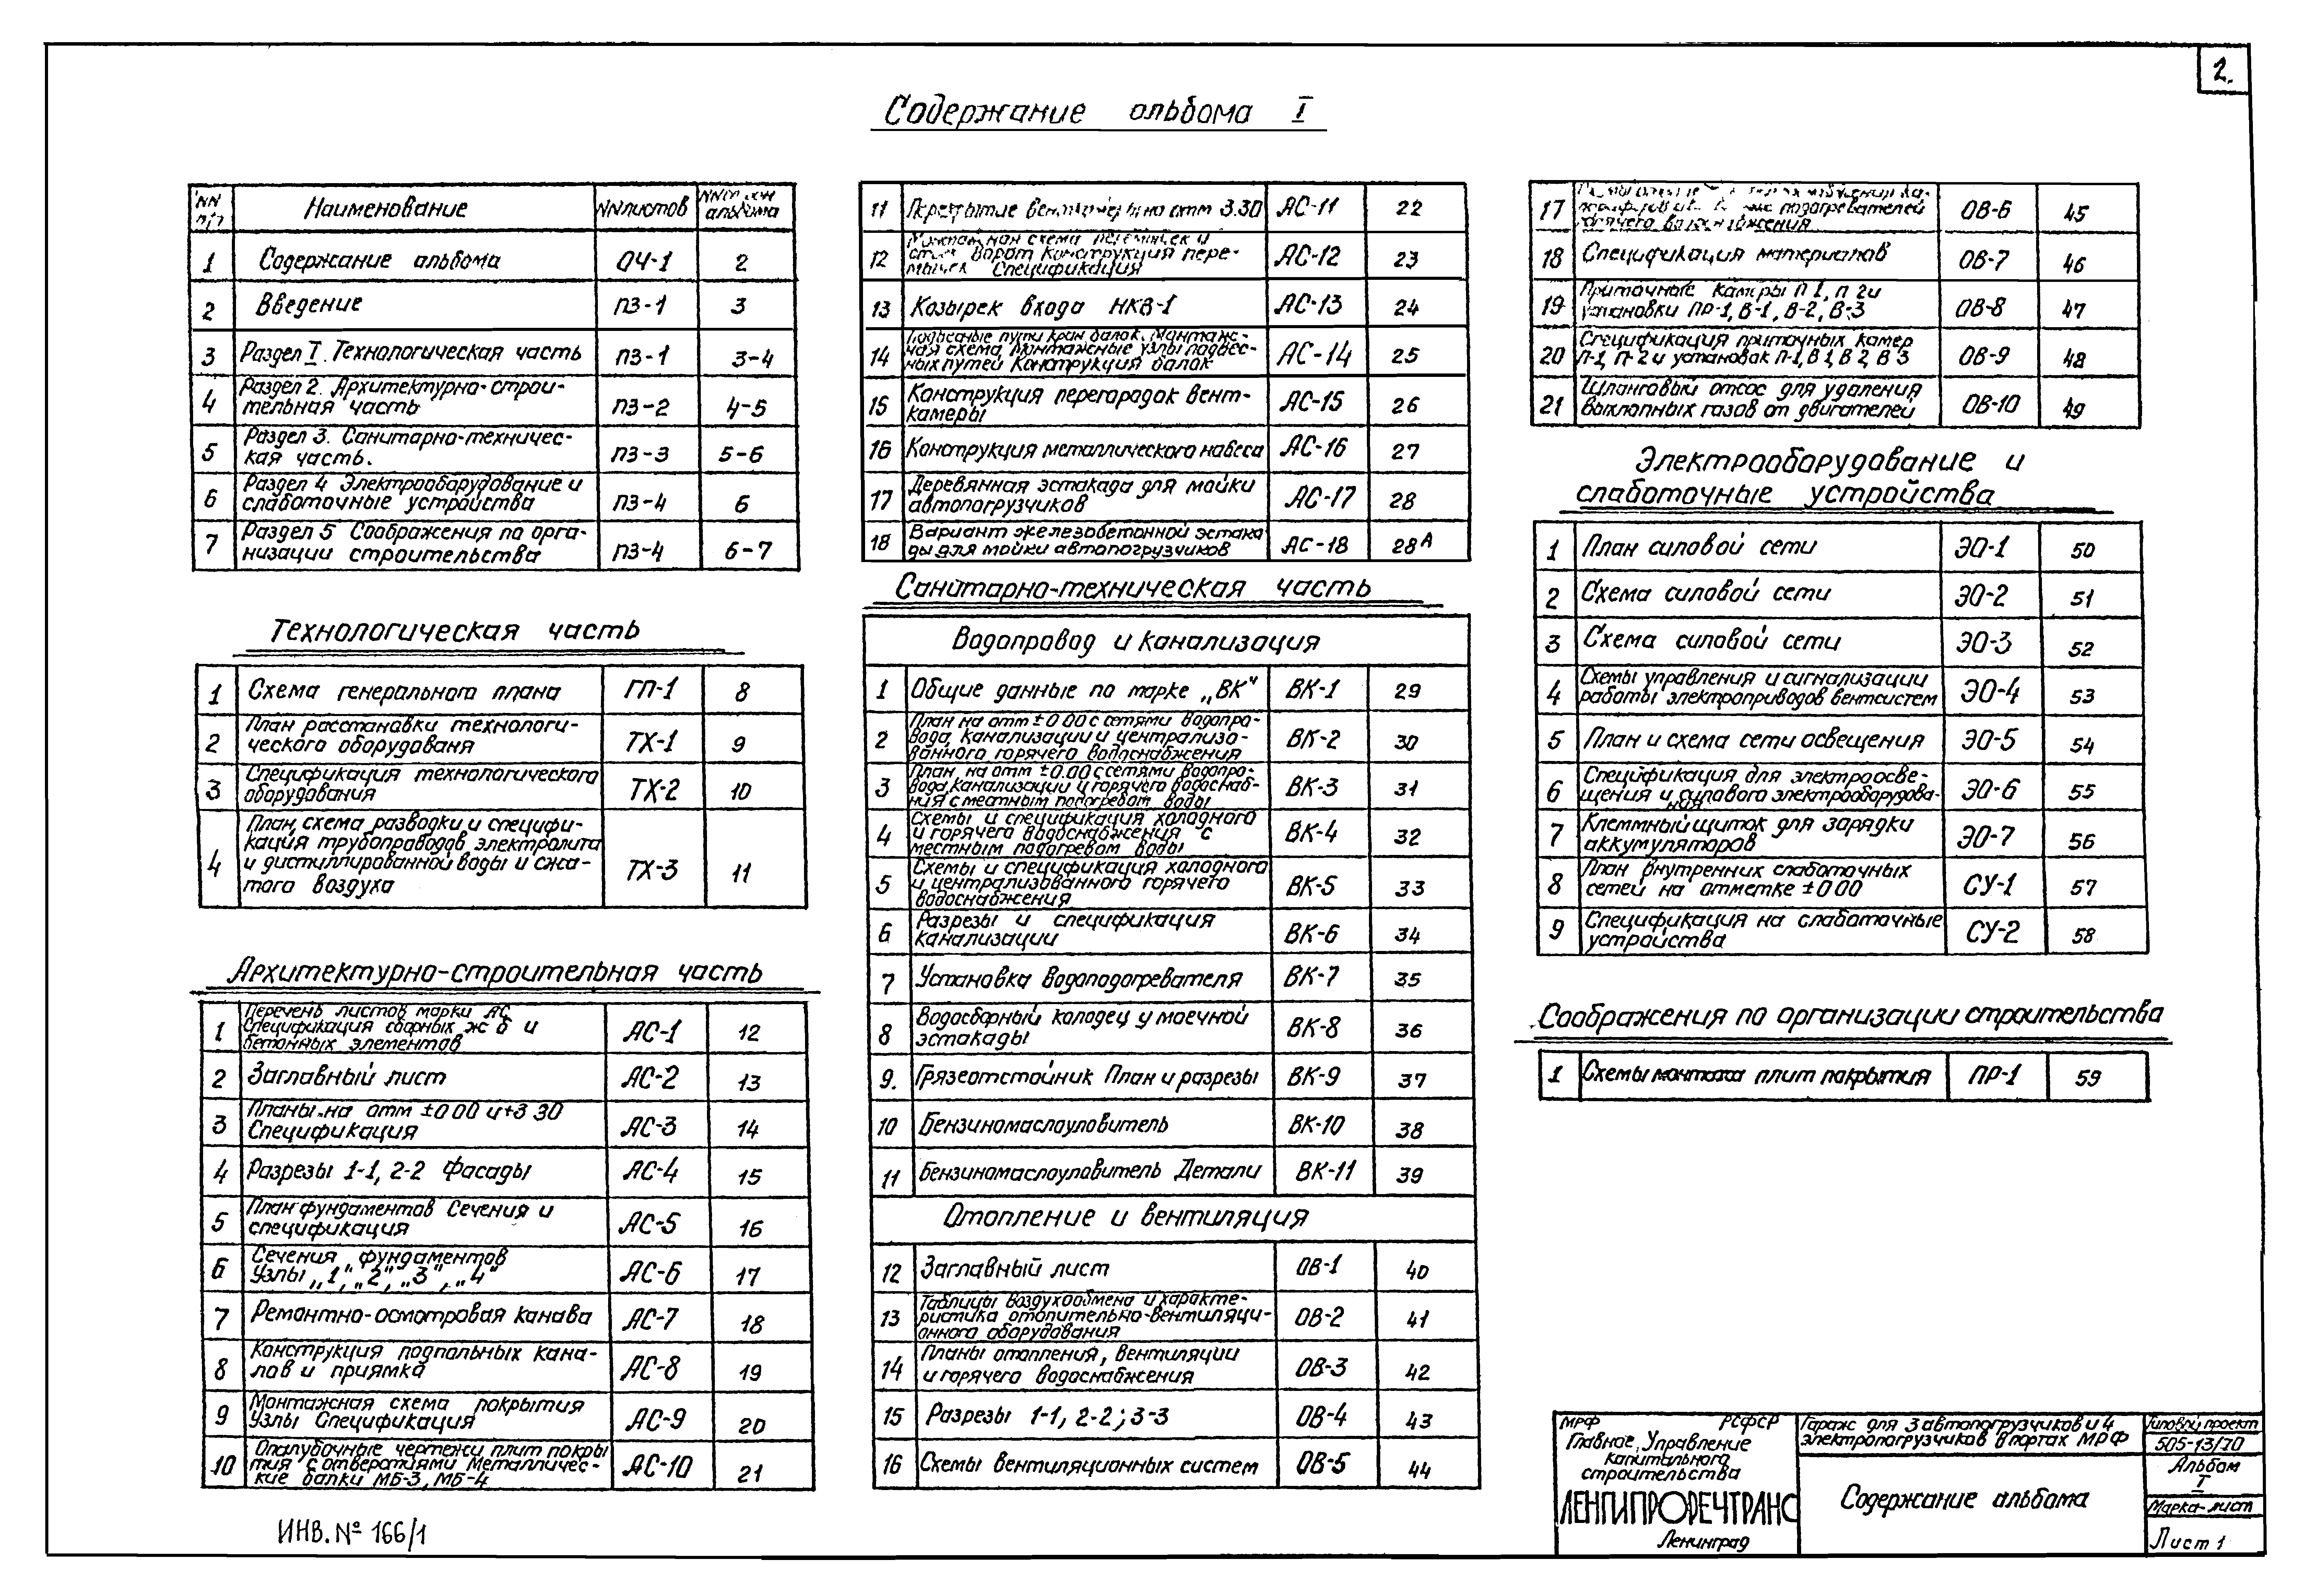 2.
Содержание альбома I
NN п/п Наименование NN листов альбома
1 Содержание альбома ОЧ-1 2
2 Введение ПЗ-1 3
3 Раздел I. Технологическая часть ПЗ-1 3-4
4 Раздел 2. Архитектурно-строи-
тельная часть ПЗ-2 4-5
5 Раздел 3. Санитарно-техничес-
кая часть. ПЗ-3 5-6
6 Раздел 4 Электрооборудование и
слаботочные устройства ПЗ-4 6
7 Раздел 5 Соображения по орга-
низации строительства ПЗ-4 6-7
Технологическая часть
1 Схема генерального плана ГП-1 8
2 План расстановки технологи-
ческого оборудованя ТХ-1 9
3 Спецификация технологического
оборудования ТХ-2 10
4 План, схема разводки и специфи-
кация трубопроводов электролита
и дистиллированной воды и сжа-
того воздуха ТХ-3 11
Архитектурно-строительная часть
1 Перечень листов марки АС
Спецификация сборных ж б и
бетонных элементов АС-1 12
2 Заглавный лист АС-2 13
3 Планы на отм ±0 00 и +3 30
Спецификация АС-3 14
4 Разрезы 1-1, 2-2 Фасады АС-4 15
5 План фундаментов Сечения и
спецификация АС-5 16
6 Сечения фундаментов
Узлы „1", „2", „3", „4" АС-6 17
7 Ремонтно-осмотровая канава АС-7 18
8 Конструкция подпольных кана-
лов и приямка АС-8 19
9 Монтажная схема покрытия
Узлы Спецификация АС-9 20
10 Опалубочные чертежи плит покры
тия с отверстиями Металличес-
кие балки МБ-3, МБ-4 АС-10 21
ИНВ. № 166/1
11 Перекрытие венткамеры на отм 3.30 АС-11 22
12 Монтажная схема перемычек и
ворот Конструкция пере-
мычек Спецификация АС-12 23
13 Козырек входа НКВ-1 АС-13 24
14 Подвесные пути кран балок. Монтаж-
ная схема, монтажные узлы подвес-
ных путей Конструкция балок АС-14 25
15 Конструкция перегородок вент-
камеры АС-15 26
16 Конструкция металлического навеса АС-16 27
17 Деревянная эстакада для мойки
автопогрузчиков АС-17 28
18 Вариант железобетонной эстака
ды для мойки автопогрузчиков АС-18 28А
Санитарно-техническая часть
Водопровод и канализация
1 Общие данные по марке „ВК" ВК-1 29
2 План на отм ±0 00 с сетями водопро-
вода, канализации и централизо-
ванного горячего водоснабжения ВК-2 30
3 План на отм ±0.00 с сетями водопро-
вода, канализации и горячего водоснаб-
ния с местным подогревом воды ВК-3 31
4 Схемы и спецификация холодного
и горячего водоснабжения с
местным подогревом воды ВК-4 32
5 Схемы и спецификация холодного
и централизованного горячего
водоснабжения ВК-5 33
6 Разрезы и спецификация
канализации ВК-6 34
7 Установка водоподогревателя ВК-7 35
8 Водосборный колодец у моечной
эстакады ВК-8 36
9. Грязеотстойник План и разрезы ВК-9 37
10 Бензиномаслоуловитель ВК-10 38
11 Бензиномаслоуловитель Детали ВК-11 39
Отопление и вентиляция
12 Заглавный лист ОВ-1 40
13 Таблицы воздухообмена и характе-
ристика отопительно-вентиляци-
онного оборудования ОВ-2 41
14 Планы отопления, вентиляции
и горячего водоснабжения ОВ-3 42
15 Разрезы 1-1, 2-2; 3-3 ОВ-4 43
16 Схемы вентиляционных систем ОВ-5 44
17 подогревателей
горячего водоснабжения ОВ-6 45
18 Спецификация материалов ОВ-7 46
19 Приточные камеры П 1, П 2 и
установки ПР-1, В-1, В-2, В-3 ОВ-8 47
20 Спецификация приточных камер
П-1, П-2 и установок П-1, В 1, В 2, В 3 ОВ-9 48
21 Шланговый отсос для удаления
выхлопных газов от двигателей ОВ-10 49
Электрооборудование и
слаботочные устройства
1 План силовой сети ЭО-1 50
2 Схема силовой сети ЭО-2 51
3 Схема силовой сети ЭО-3 52
4 Схемы управления и сигнализации
работы электроприводов вентсистем ЭО-4 53
5 План и схема сети освещения ЭО-5 54
6 Спецификация для электроосве-
щения и силового электрооборудова-
ния ЭО-6 55
7 Клеммный щиток для зарядки
аккумуляторов ЭО-7 56
8 План внутренних слаботочных
сетей на отметке ±0 00 СУ-1 57
9 Спецификация на слаботочные
устройства СУ-2 58
Соображения по организации строительства
1 Схемы монтажа плит покрытия ПР-1 59
МРФ РСФСР
Главное Управление
капитального
строительства
ЛЕНГИПРОРЕЧТРАНС
Ленинград
Гараж для 3 автопогрузчиков и 4
электропогрузчиков в портах МРФ
Содержание альбома
Типовой проект
505-13/70
Альбом
I
Марка-лист
Лист 1